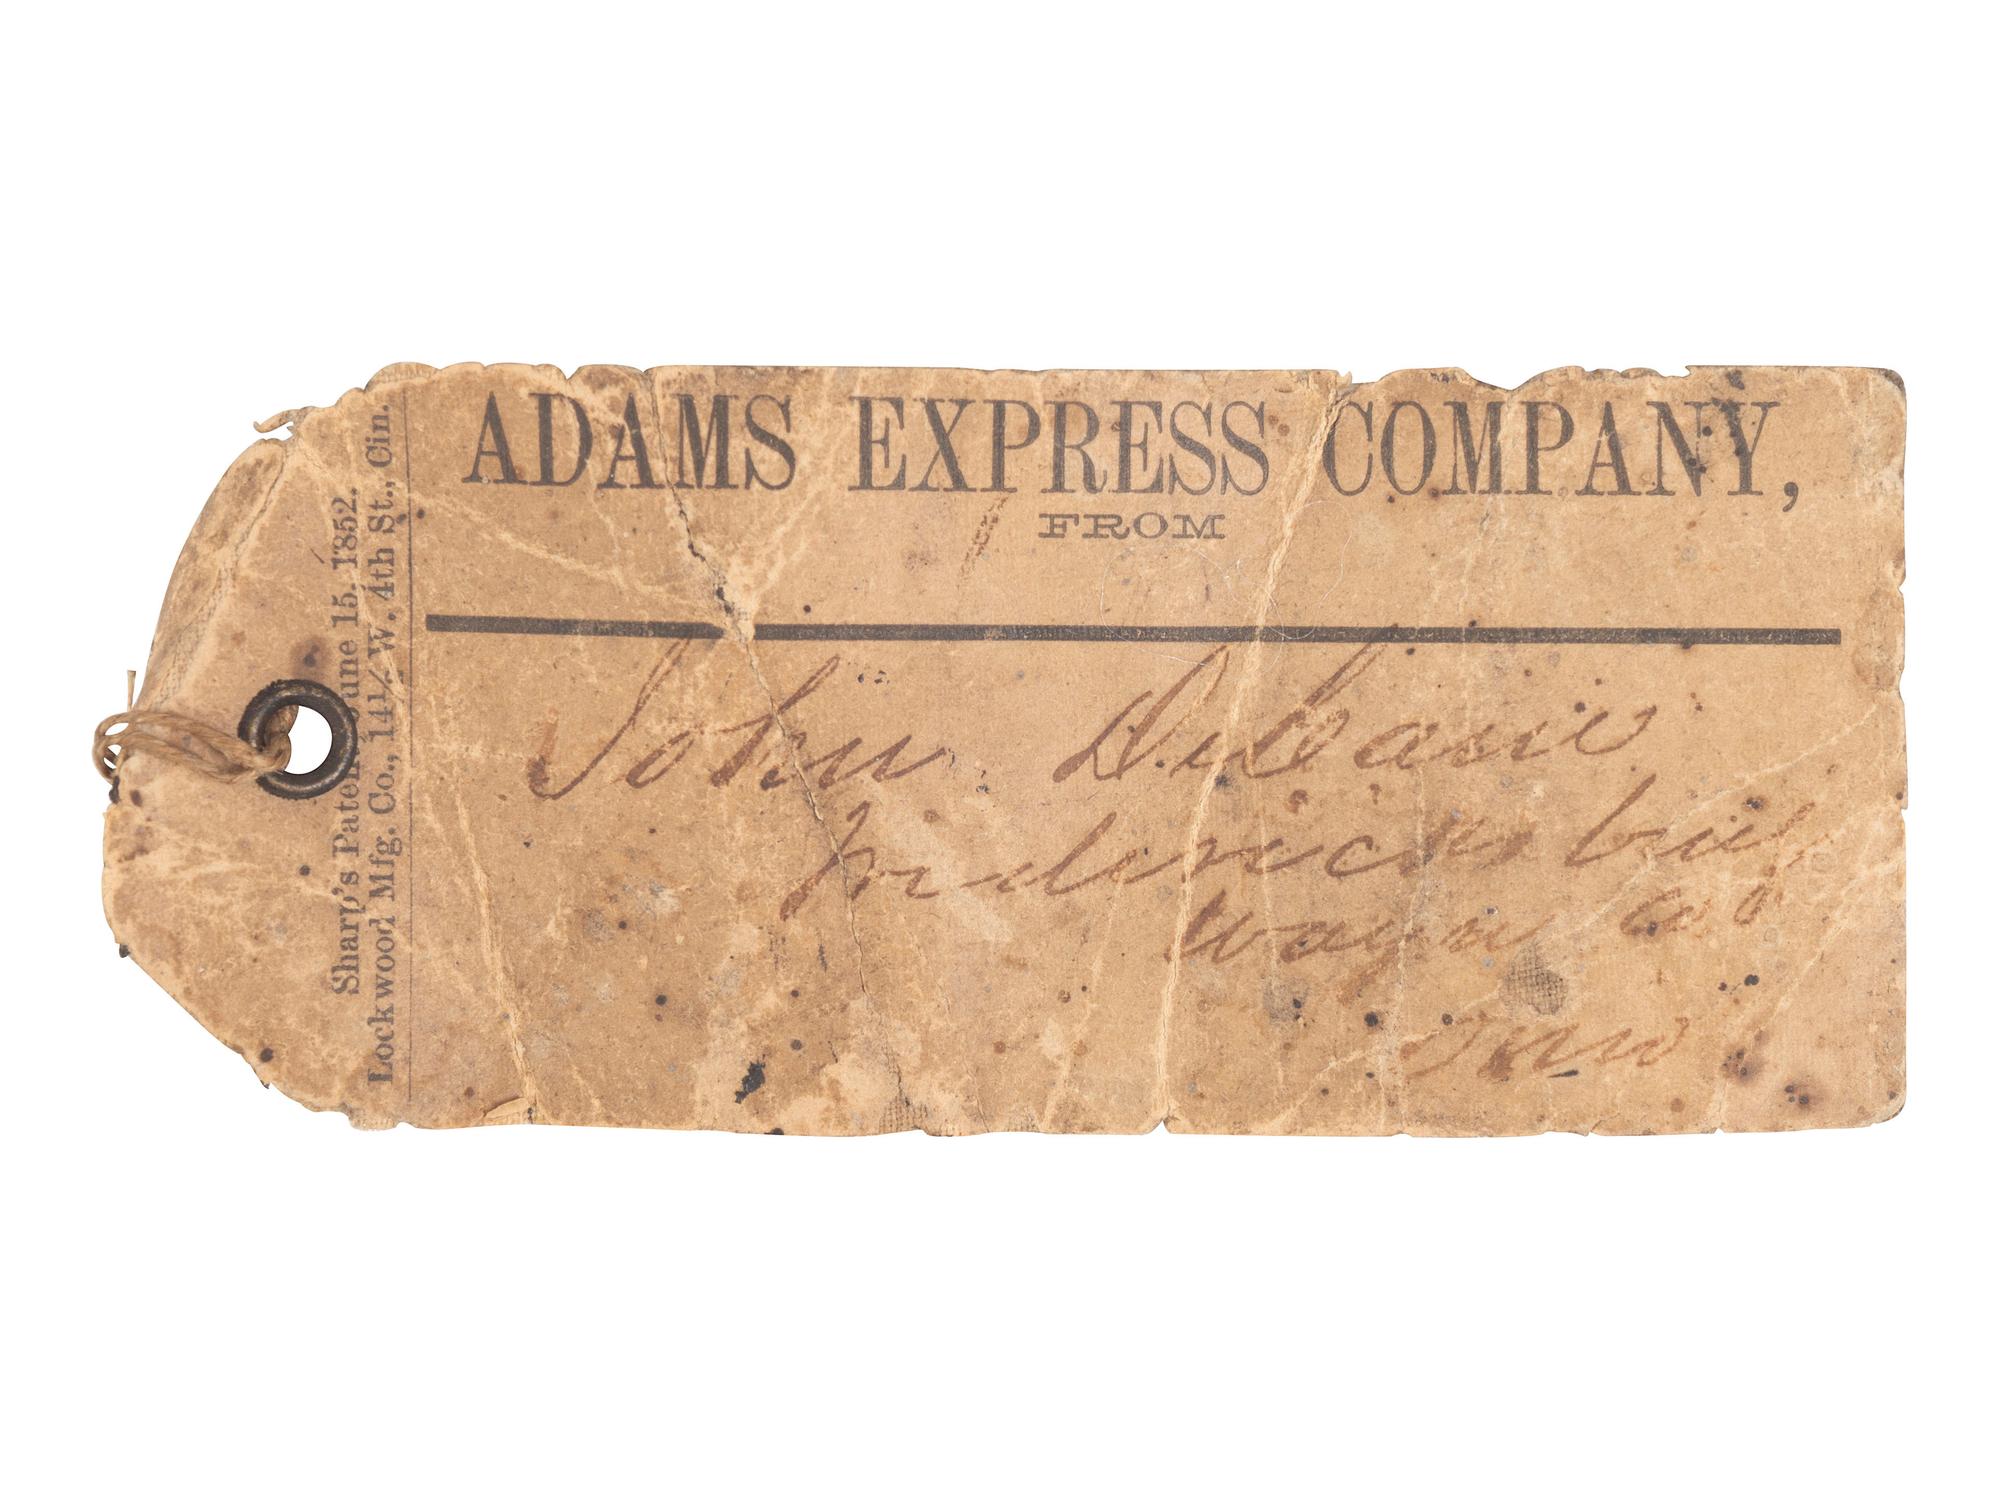 ADAMS EXPRESS COMPANY,
FROM
John
Fredericksburg
Wayne co o
Sharp's Patent June 15. 1852.
Lockwood Mfg. Co., 14½ W. 4th St., Cin.